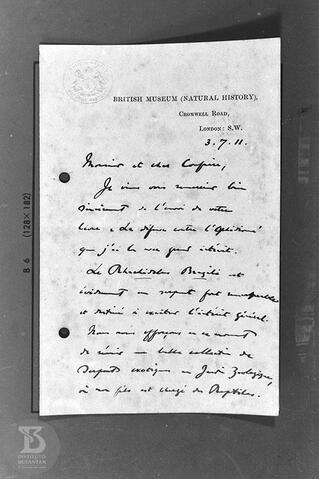 BRITISH MUSEUM (NATURAL HISTORY),
CROMWELL ROAD,
LONDON: S.W.
3.7.11.
Monsieur et cher Confrère,
Je viens vous remercier bien
sincèrement de l'envoi de votre
livre "La défense contre l'Ophidisme"
que j'ai lu avec grand intérêt.
Le Rhachidelus Brazili est
évidemment un serpent fort remarquable
et destiné à exciter l'intérêt général.
Nous nous efforçons en ce moment
de réunir une belle collection de
Serpents exotiques au Jardin Zoologique,
où mon fils est chargé des Reptiles.
B 6 (128×182)
INSTITUTO
BUTANTAN